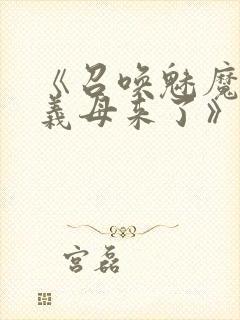 《召唤魅魔
義母来了》
宫磊